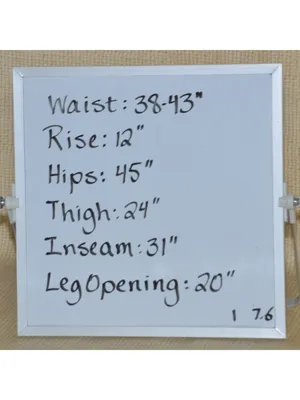 Waist: 38-43"
Rise: 12"
Hips: 45"
Thigh: 24"
Inseam: 31"
Leg Opening: 20"
1 7.6